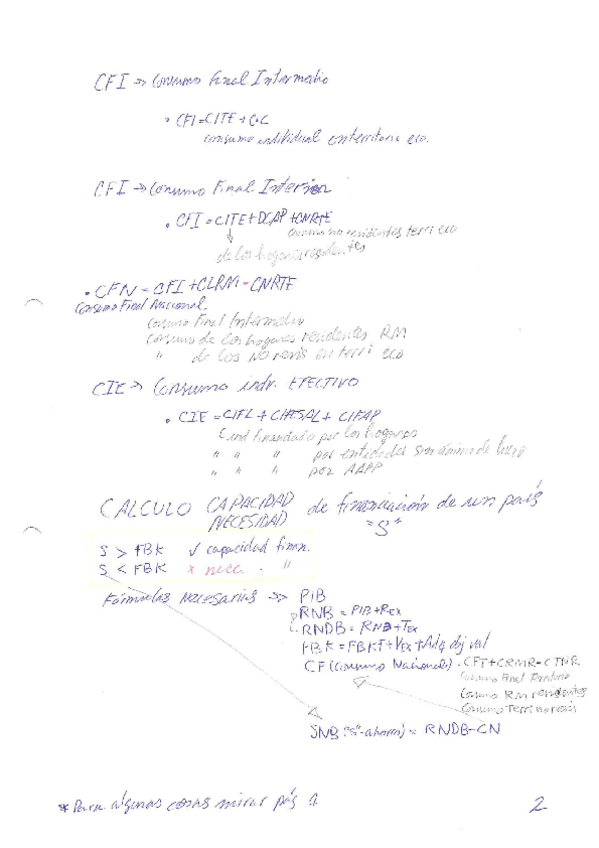 CFI → Consumo Final Intermedio
• CFI = CITE + C.C
consumo individual en territorio eco.
CFI → Consumo Final Interior
• CFI = CITE + DCAP + CNRTE
consumo no residentes terri eco
de los hogares residentes
• CFN = CFI + CLRM - CNRTE
Consumo Final Nacional
Consumo Final Intermedio
Consumo de los hogares residentes RM
" de los NO resis en terri eco
CIE → Consumo indv. EFECTIVO
• CIE = CIFL + CIHESAL + CIFAP
C ind financiado por los hogares
" " " por entidades sin ánimo de lucro
" " " por AAPP
CALCULO CAPACIDAD NECESIDAD de financiación de un país
"S"
S > FBK ✓ capacidad finan.
S < FBK × nece. "
Fórmulas Necesarias → PIB
RNB = PIB + REX
RNDB = RNB + TEX
FBK = FBKF + VEX + Adq obj val
CF (Consumo Nacional) = CFT + CRMR - CTNR
Consumo Final Territorio
Consumo RM residentes
Consumo Terri no resis
SNB ("S"-ahorro) = RNDB - CN
* Para algunas cosas mirar pág 1
2